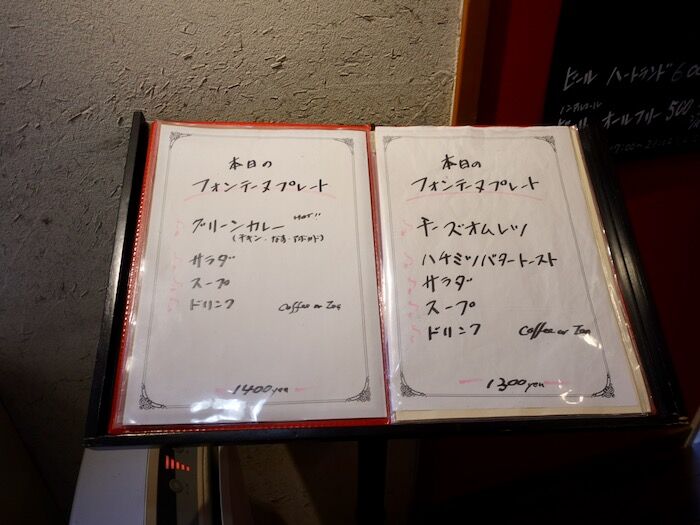 本日の
フォンテーヌプレート
グリーンカレー HOT!!
(チキン・なす・アボカド)
サラダ
スープ
ドリンク Coffee or Tea
1400yen
本日の
フォンテーヌプレート
チーズオムレツ
ハチミツバタートースト
サラダ
スープ
ドリンク Coffee or Tea
1300yen
ビール ハートランド 600
ノンアルコール
ビール オールフリー 500